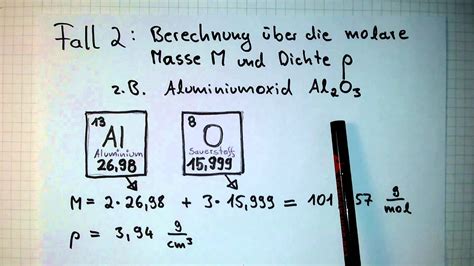 Fall 2: Berechnung über die molare
Masse M und Dichte ρ
z.B. Aluminiumoxid Al₂O₃
13
Al
Aluminium
26,98
8
O
Sauerstoff
15,999
M = 2·26,98 + 3·15,999 = 101 57 g/mol
ρ = 3,94 g/cm³